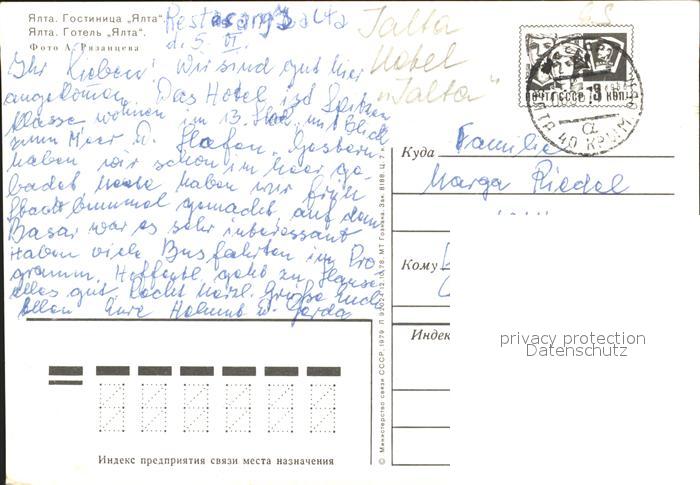 Ялта. Гостиница „Ялта“.
Ялта. Готель „Ялта“.
Фото А. Рязанцева
Jalta
d. 5. VI.
Jalta
Hotel
„Jalta“
Ihr Lieben! Wir sind gut hier
angekommen. Das Hotel ist Spitzen
klasse wohnen im 13. Stock mit Blick
zum Meer u. Hafen. Gestern
haben wir schon im Meer ge-
badet, heute haben wir früh
Stadtbummel gemacht, auf dem
Basar war es sehr interessant
Haben viele Busfahrten im Pro-
gramm. Hoffentl. geht zu Hause
alles gut. Recht herzl. Grüße Euch
allen Eure Helmut u. Gerda
ПОЧТА СССР
Куда
Familie
Marga Riedel
Кому
Индекс
privacy protection
Datenschutz
Индекс предприятия связи места назначения
© Министерство связи СССР, 1979